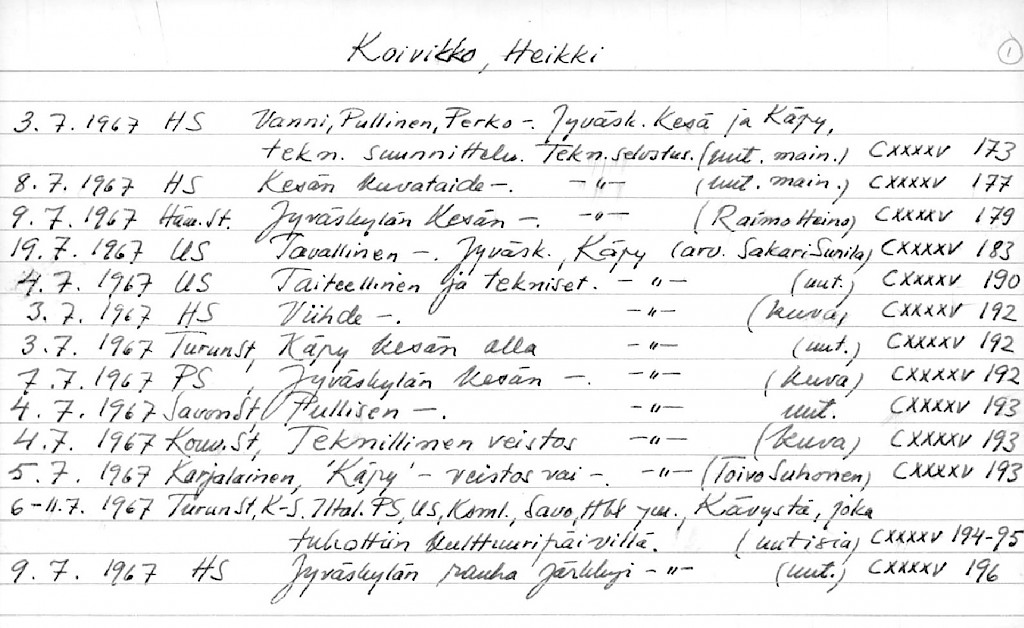 Koivikko, Heikki 1
3.7.1967 HS Vanni, Pullinen, Perko -. Jyväsk. Kesä ja Käpy,
tekn. suunnittelu. Tekn. selostus. (uut. main.) CXXXXV 173
8.7.1967 HS Kesän kuvataide -. -"- (uut. main.) CXXXXV 177
9.7.1967 Häm.St. Jyväskylän Kesän -. -"- (Raimo Heino) CXXXXV 179
19.7.1967 US Tavallinen -. Jyväsk., Käpy (arv. Sakari Sunila) CXXXXV 183
4.7.1967 US Taiteellinen ja tekniset. -"- (uut.) CXXXXV 190
3.7.1967 HS Viihde -. -"- (kuva) CXXXXV 192
3.7.1967 TurunSt, Käpy kesän alla -"- (uut.) CXXXXV 192
7.7.1967 PS, Jyväskylän kesän -. -"- (kuva) CXXXXV 192
4.7.1967 SavonSt, Pullisen -. -"- uut. CXXXXV 193
4.7.1967 Kouv.St, Teknillinen veistos -"- (kuva) CXXXXV 193
5.7.1967 Karjalainen, 'Käpy' - veistos vai -. -"- (Toivo Suhonen) CXXXXV 193
6-11.7.1967 TurunSt, K-S. Ital. PS, US, Koml., Savo, Hbl ym., Kävystä, joka
tuhottiin kulttuuripäivillä. (uutisia) CXXXXV 194-95
9.7.1967 HS Jyväskylän rauha järkkyi -"- (uut.) CXXXXV 196